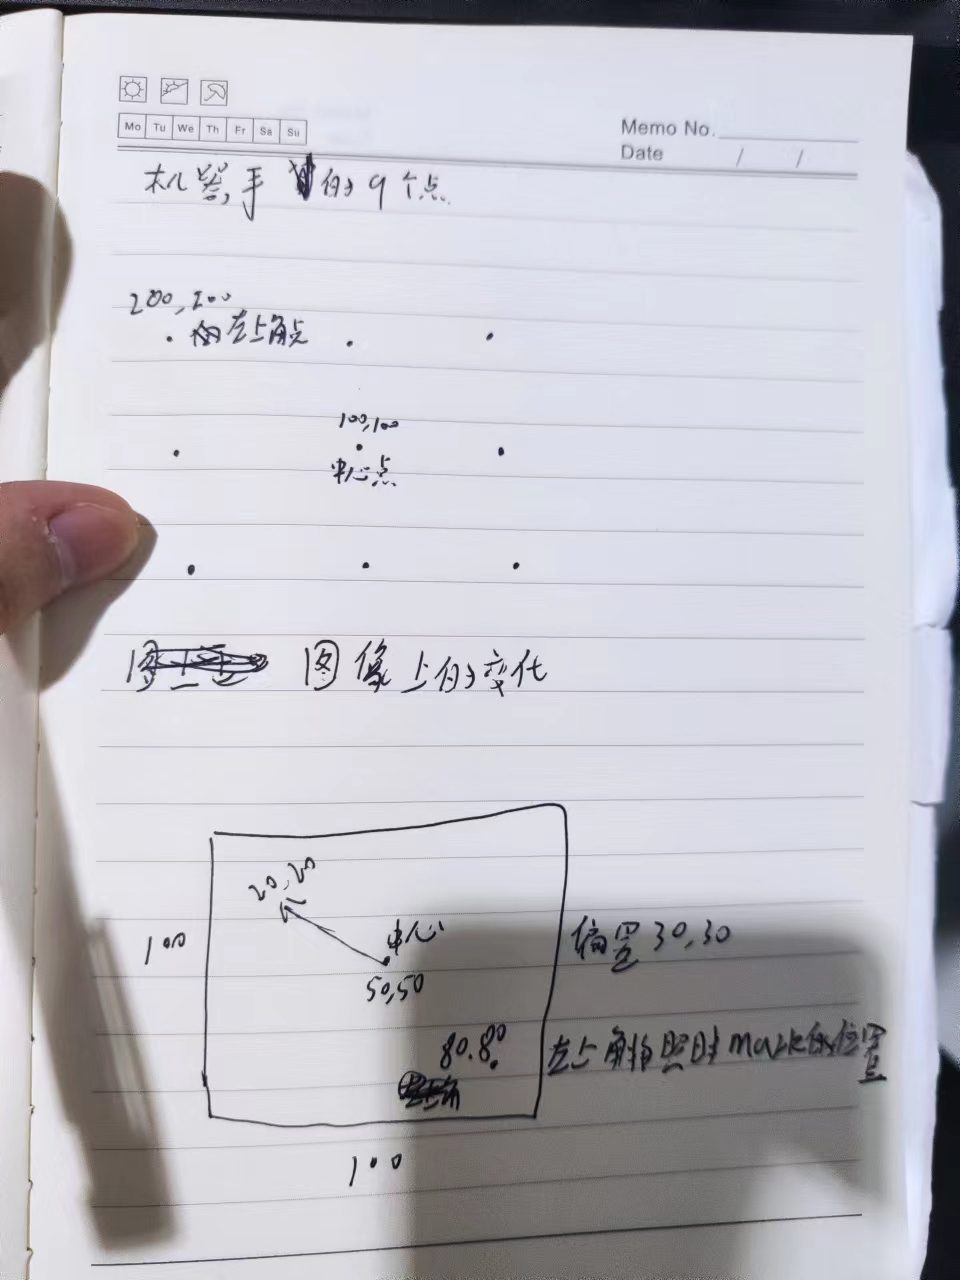 Mo Tu We Th Fr Sa Su
Memo No.
Date / /
机器手 的9个点
200,200
左上角点
100,100
中心点
图像上的变化
20,20
中心
50,50
偏置30,30
100
80.80
左上角拍照时mark的位置
100